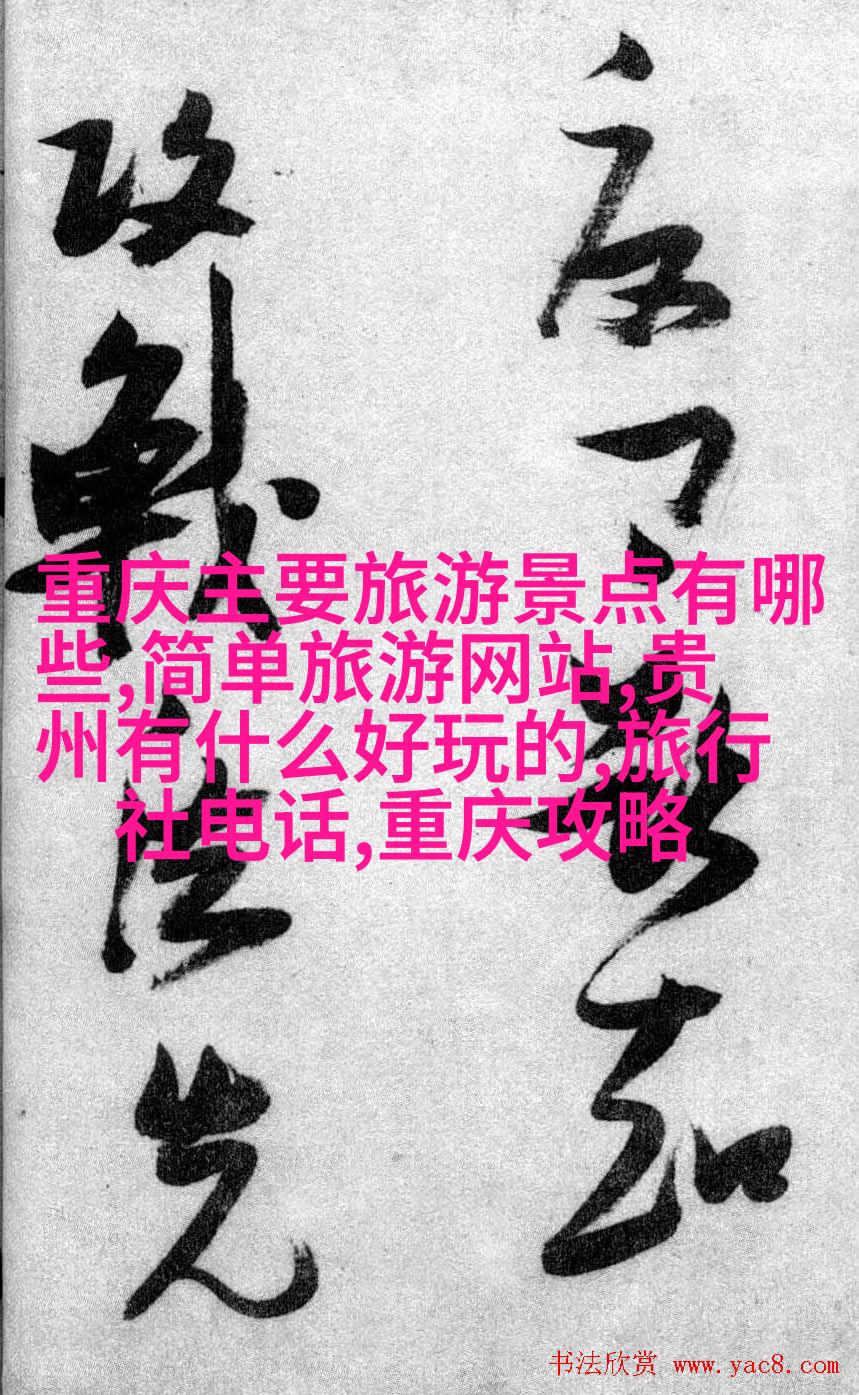 重庆主要旅游景点有哪
些,简单旅游网站,贵
州有什么好玩的,旅行
社电话,重庆攻略
知
攻戰法先
书法欣赏 www.yac8.com